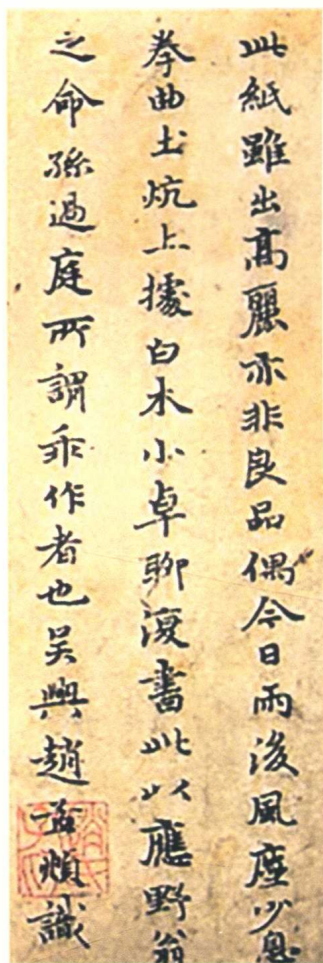 此紙雖出高麗亦非良品偶今日雨後風塵少息
拳曲土炕上據白木小卓聊復書此以應野翁
之命孫過庭所謂乖作者也吴興趙孟頫識
趙氏子昂